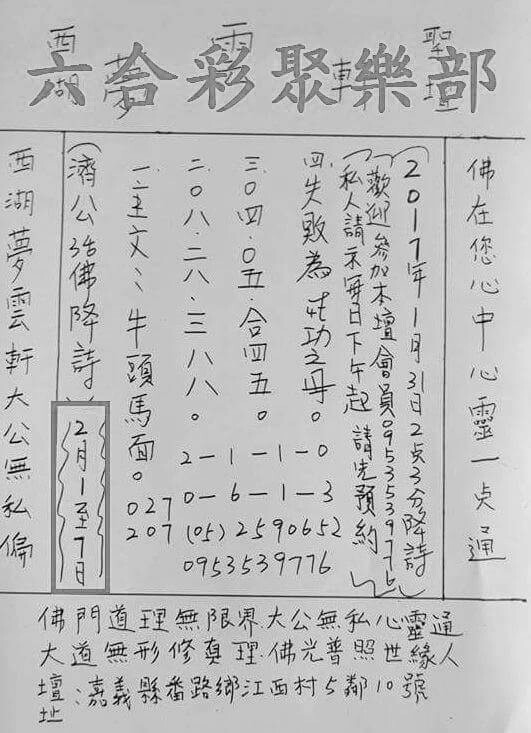 西湖夢雲軒聖壇
六合彩聚樂部
佛在您心中心靈一点通
(2017年1月31日2点3分降詩)
(歡迎參加本壇會員。0953539776)
(私人請示每日下午起 請先預約)
四.失敗為成功之母。
三.04.05.合四五。
二.08.28.388。
一.主文:牛頭馬面。
2-1-1-0
0-6-1-3
027
207
(05)2590652
0953539776
(濟公活佛降詩)
2月1至7日
西湖夢雲軒大公無私偏
佛門道理無限界.大公無私心靈通
大道無形修真理.佛光普照世緣人
壇址:嘉義縣番路鄉江西村5鄰10號